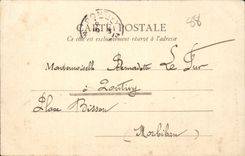 CARTE POSTALE
Ce côté est exclusivement réservé à l'adresse
88
Mademoiselle Bernadette Le Fur
à Pontivy
Place Bisson
Morbihan